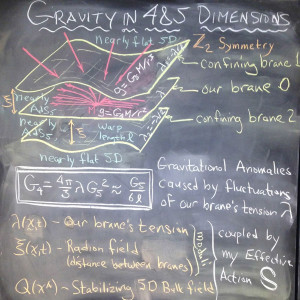 GRAVITY IN 4&5 DIMENSIONS
nearly flat 5D
Z₂ Symmetry
confining brane 1
our brane 0
nearly AdS₅
ξ
nearly AdS₅
ξ
warp length ℓ
confining brane 2
nearly flat 5D
G₄ = 4π/3 λ G₅² ≈ G₅/6ℓ
Gravitational Anomalies
caused by fluctuations
of our brane's tension λ
λ(x,t) ~ Our brane's tension
ξ(x,t) ~ Radion field
(distance between branes)
Q(xᴬ) ~ Stabilizing 5D Bulk field
coupled by
my Effective
Action S